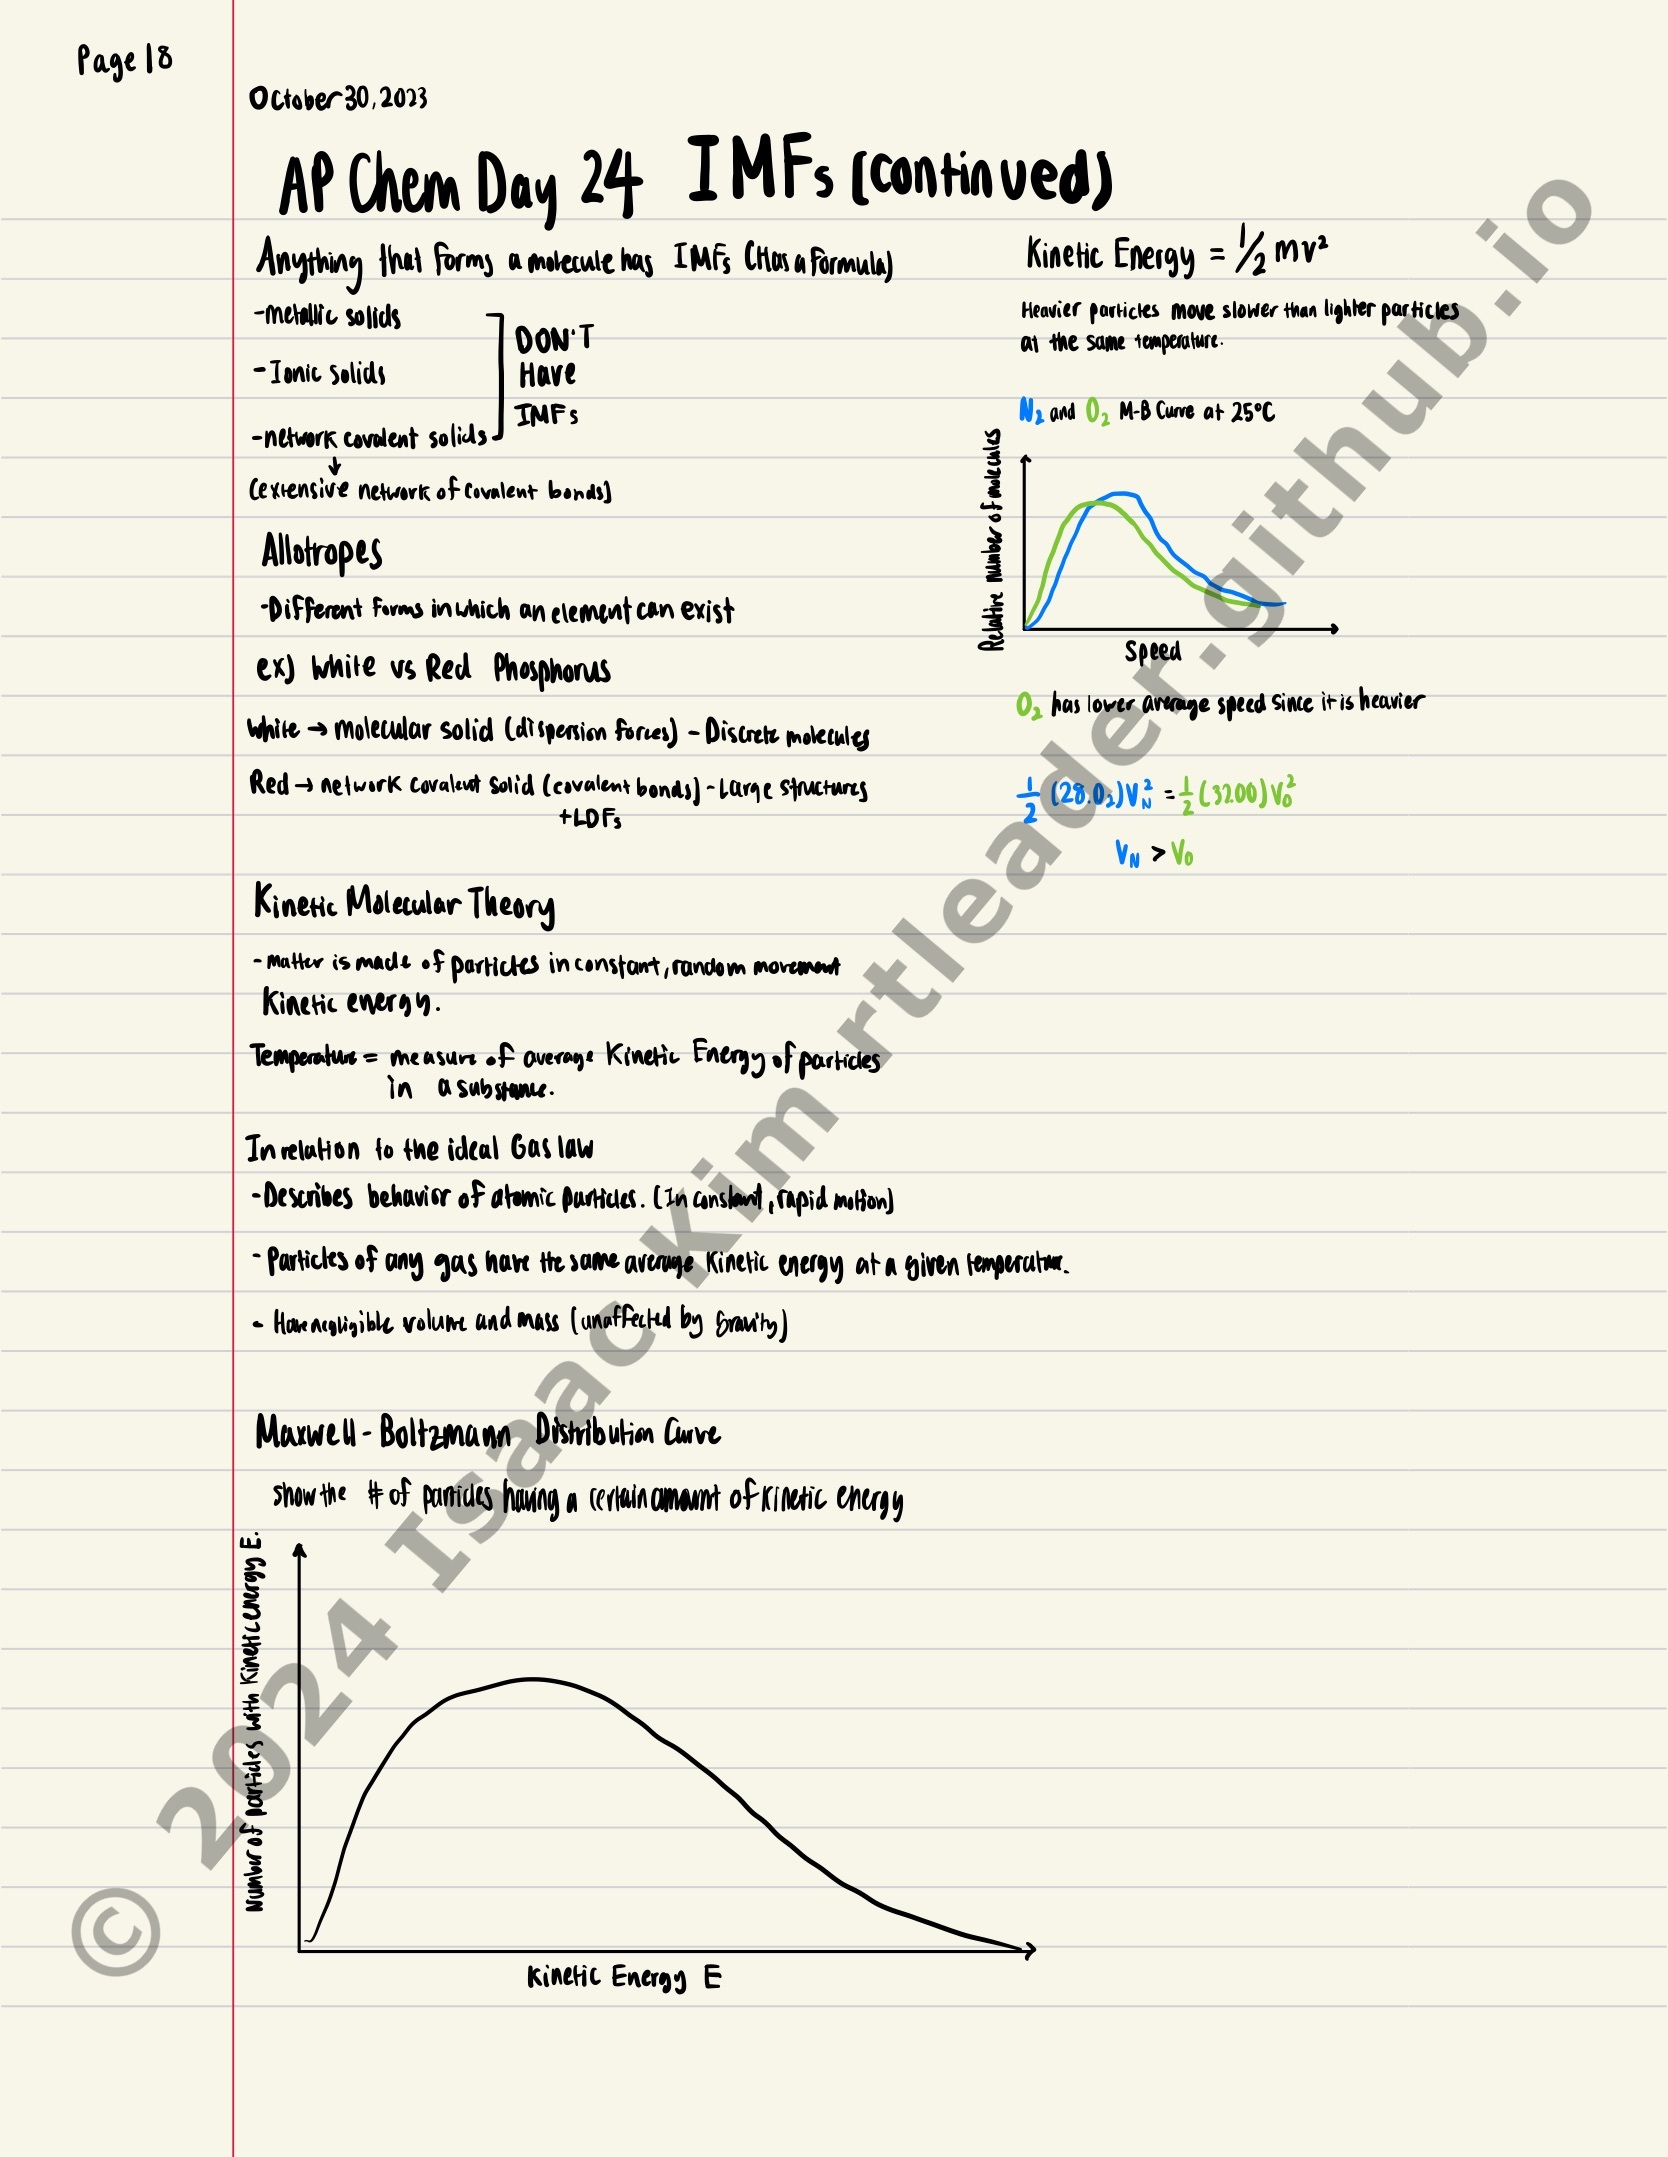 Page 18
October 30, 2023
AP Chem Day 24 IMFs (continued)
Anything that forms a molecule has IMFs (Has a formula)
-metallic solids
-Ionic solids
-network covalent solids
DON'T
Have
IMFs
↓
(extensive network of covalent bonds)
Allotropes
-Different forms in which an element can exist
ex) White vs Red Phosphorus
White → molecular solid (dispersion forces) - Discrete molecules
Red → network covalent solid (covalent bonds) - Large structures
+LDFs
Kinetic Molecular Theory
- matter is made of particles in constant, random movement
Kinetic energy.
Temperature = measure of average Kinetic Energy of particles
in a substance.
In relation to the ideal Gas law
-Describes behavior of atomic particles. (In constant, rapid motion)
- Particles of any gas have the same average kinetic energy at a given temperature.
- Have negligible volume and mass (unaffected by gravity)
Maxwell-Boltzmann Distribution Curve
show the # of particles having a certain amount of kinetic energy
Number of particles with Kinetic energy E.
Kinetic Energy E
Kinetic Energy = 1/2 mv²
Heavier particles move slower than lighter particles
at the same temperature.
N₂ and O₂ M-B Curve at 25°C
Relative number of molecules
Speed
O₂ has lower average speed since it is heavier
1/2 (28.02) V_N² = 1/2 (32.00) V_O²
V_N > V_O
© 2024 Isaac Kim rtleader.github.io